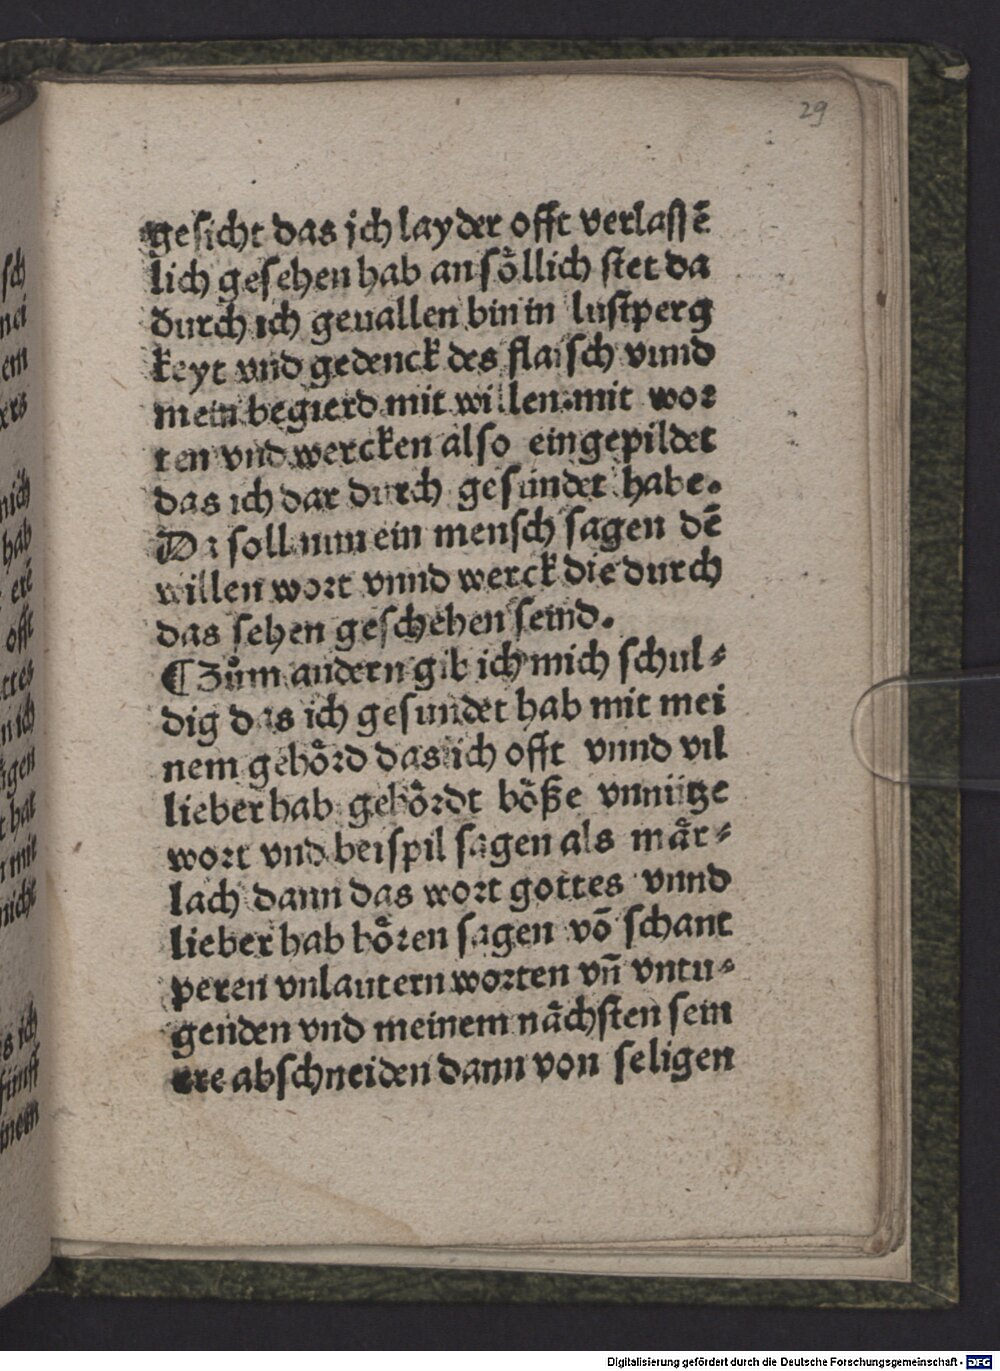 29
gesicht das ich layder offt verlassē
lich gesehen hab an soͤllich stet da
durch ich geuallen bin in lustperg
keyt vnd gedenck des flaisch vnnd
mein begierd mit willen. mit wor
ten vnd wercken also eingepildet
das ich dar durch gesundet habe.
Da soll nun ein mensch sagen dē
willen wort vnnd werck die durch
das sehen geschehen seind.
¶ Zům andern gib ich mich schul⸗
dig das ich gesundet hab mit mei
nem gehoͤrd das ich offt vnnd vil
lieber hab gehoͤrdt boͤße vnnütze
wort vnd beispil sagen als maͤr⸗
lach dann das wort gottes vnnd
lieber hab hoͤren sagen vō schant
peren vnlautern worten vn̄ vntu⸗
genden vnd meinem naͤchsten sein
ere abschneiden dann von seligen
sch
nei
em
ers
mich
hab
erē
offt
ttes
n ich
ůgen
t hat
n mit
nicht
s ich
fünff
inem
Digitalisierung gefördert durch die Deutsche Forschungsgemeinschaft - DFG